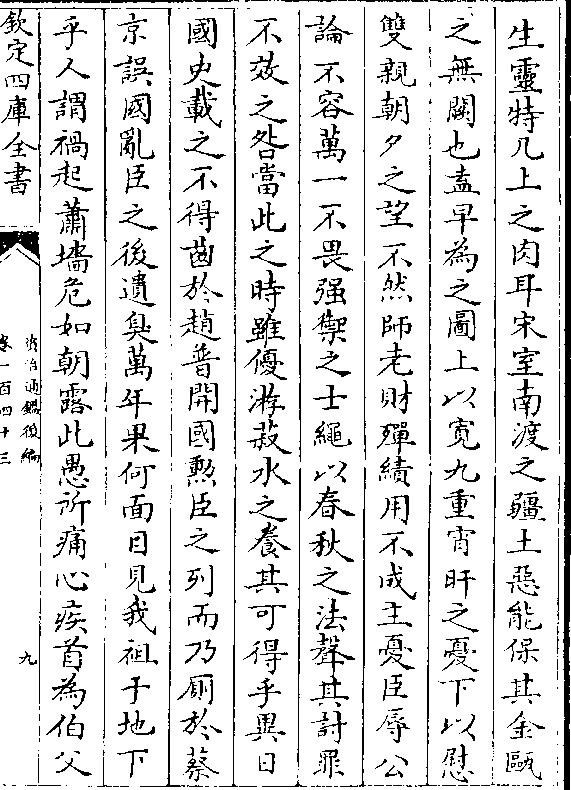 生靈特几上之肉耳宋室南渡之疆土惡能保其金甌
之無闕也盍早為之圖上以寛九重宵旰之憂下以慰
雙親朝夕之望不然師老財殫績用不成主憂臣辱公
論不容萬一不畏强禦之士繩以春秋之法聲其討罪
不效之咎當此之時雖優游菽水之養其可得乎異日
國史載之不得齒於趙普開國勲臣之列而乃厠於蔡
京誤國亂臣之後遺臭萬年果何面目見我祖于地下
乎人謂禍起蕭墻危如朝露此愚所痛心疾首為伯父
欽定四庫全書
資治通鑑後編
卷一百四十三
九